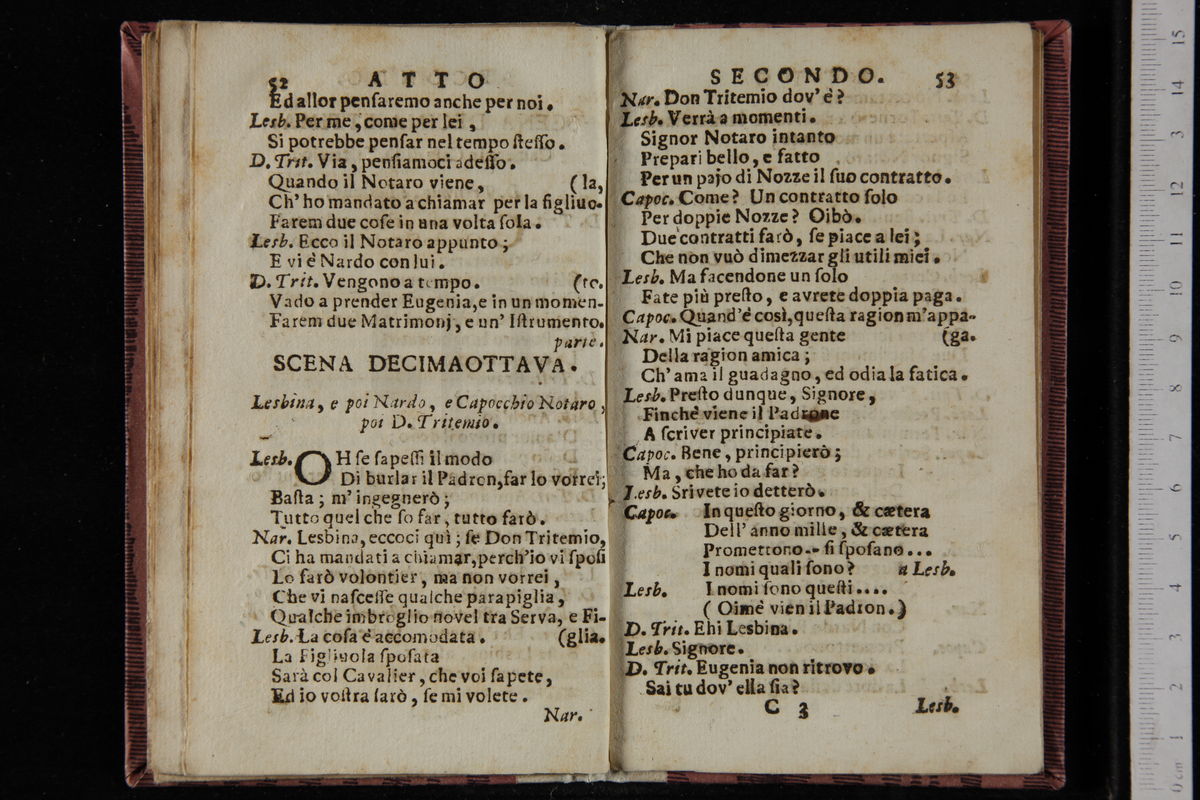 52 ATTO
Ed allor penſaremo anche per noi.
Lesb. Per me, come per lei,
Si potrebbe penſar nel tempo ſteſſo.
D. Trit. Via, penſiamoci adeſſo.
Quando il Notaro viene, (la,
Ch' ho mandato a chiamar per la figliuo-
Farem due coſe in una volta ſola.
Lesb. Ecco il Notaro appunto;
E vi è Nardo con lui.
D. Trit. Vengono a tempo. (to.
Vado a prender Eugenia, e in un momen-
Farem due Matrimonj, e un' Iſtrumento.
parte.
SCENA DECIMAOTTAVA.
Lesbina, e poi Nardo, e Capocchio Notaro,
poi D. Tritemio.
Lesb. OH ſe ſapeſſi il modo
Di burlar il Padron, far lo vorrei;
Baſta; m' ingegnerò;
Tutto quel che ſo far, tutto farò.
Nar. Lesbina, eccoci quì; ſe Don Tritemio,
Ci ha mandati a chiamar, perch'io vi ſpoſi
Lo farò volontier, ma non vorrei,
Che vi naſceſſe qualche parapiglia,
Qualche imbroglio novel tra Serva, e Fi-
Lesb. La coſa è accomodata. (glia.
La Figliuola ſpoſata
Sarà col Cavalier, che voi ſapete,
Ed io voſtra ſarò, ſe mi volete.
Nar.
SECONDO. 53
Nar. Don Tritemio dov' è?
Lesb. Verrà a momenti.
Signor Notaro intanto
Prepari bello, e fatto
Per un pajo di Nozze il ſuo contratto.
Capoc. Come? Un contratto ſolo
Per doppie Nozze? Oibò.
Due contratti farò, ſe piace a lei;
Che non vuò dimezzar gli utili miei.
Lesb. Ma facendone un ſolo
Fate più preſto, e avrete doppia paga.
Capoc. Quand'è così, queſta ragion m'appa-
Nar. Mi piace queſta gente (ga.
Della ragion amica;
Ch' ama il guadagno, ed odia la fatica.
Lesb. Preſto dunque, Signore,
Finchè viene il Padrone
A ſcriver principiate.
Capoc. Bene, principierò;
Ma, che ho da far?
Lesb. Srivete io detterò.
Capoc. In queſto giorno, & cætera
Dell' anno mille, & cætera
Promettono-- ſi ſpoſano...
I nomi quali ſono? a Lesb.
Lesb. I nomi ſono queſti....
( Oimè vien il Padron.)
D. Trit. Ehi Lesbina.
Lesb. Signore.
D. Trit. Eugenia non ritrovo.
Sai tu dov' ella ſia?
C 3 Lesb.